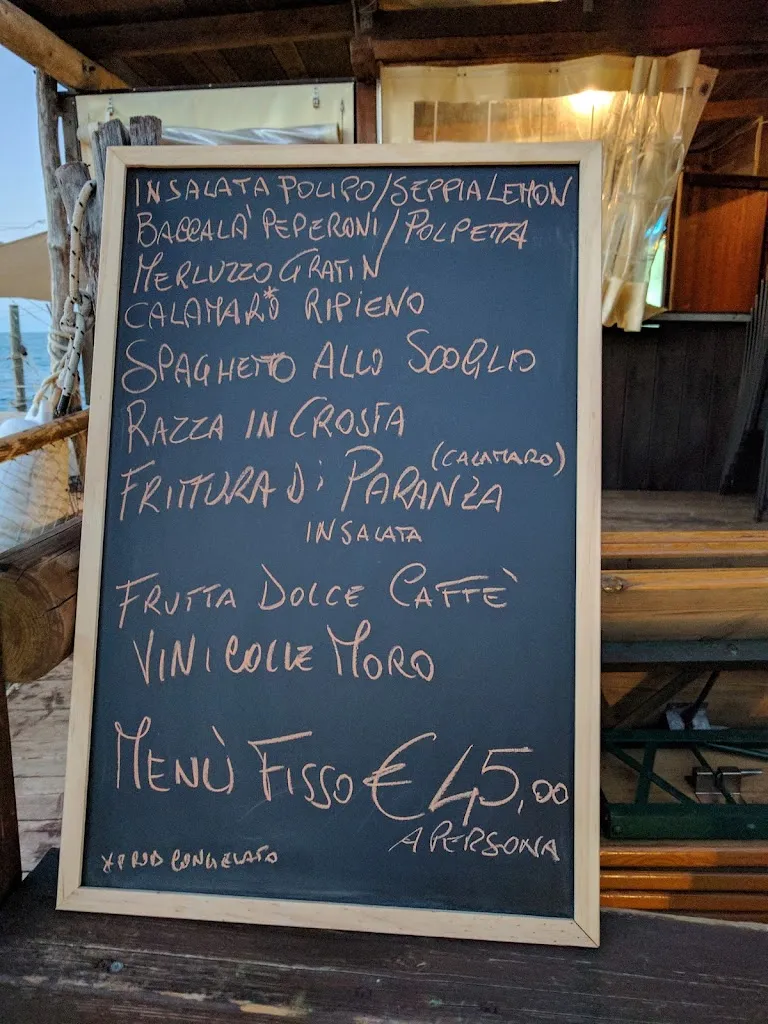 INSALATA POLIPO/SEPPIA LEMON
BACCALA' PEPERONI/POLPETTA
MERLUZZO GRATIN
CALAMARO* RIPIENO
SPAGHETTO ALLO SCOGLIO
RAZZA IN CROSTA
(CALAMARO)
FRITTURA Di PARANZA
INSALATA
FRUTTA DOLCE CAFFÈ
VINI COLLE MORO
MENÙ FISSO € 45,00
A PERSONA
*PROD CONGELATO